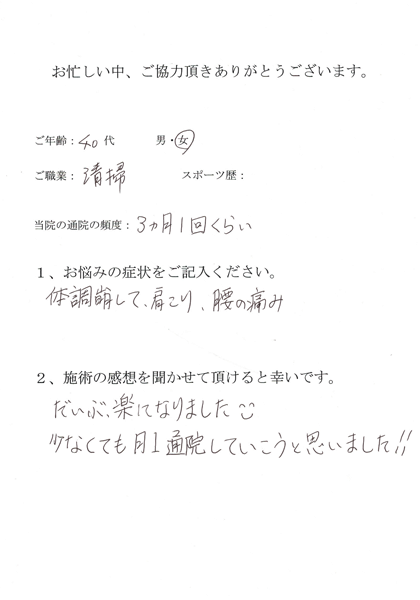 お忙しい中、ご協力頂きありがとうございます。
ご年齢：40代　男・女
ご職業：清掃　スポーツ歴：
当院の通院の頻度：3ヵ月1回くらい
１、お悩みの症状をご記入ください。
体調崩して、肩こり、腰の痛み
２、施術の感想を聞かせて頂けると幸いです。
だいぶ、楽になりました
少なくても月1通院していこうと思いました!!